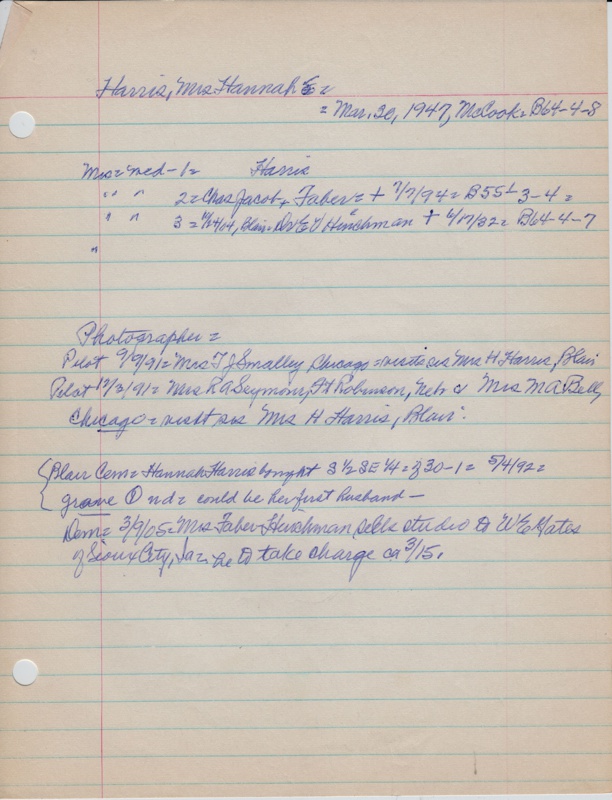 Harris, Mrs Hannah E =
= Mar. 30, 1947, McCook = B64-4-8
Mrs = med - 1 = Harris
" " 2 = Chas Jacob Faber = + 7/7/94 = B55 1/2 3-4 =
" " 3 = /04, Blair = Dr E V Hinchman + 4/17/32 = B64-4-7
"
Photographer =
Pilot 9/9/91 = Mrs T J Smalley, Chicago = visits sis Mrs H Harris, Blair
Pilot 12/3/91 = Mrs L A Seymour, Ft Robinson, Neb & Mrs M A Bell,
Chicago = visit sis Mrs H Harris, Blair.
Blair Cem = Hannah Harris bought S 1/2 SE 1/4 = 30-1 = 5/4/92 =
grave 1 nd = could be her first husband —
Dem = 3/9/05 = Mrs Faber Hinchman sells studio to W E Yates
of Sioux City, Ia = he to take charge ca 3/15.